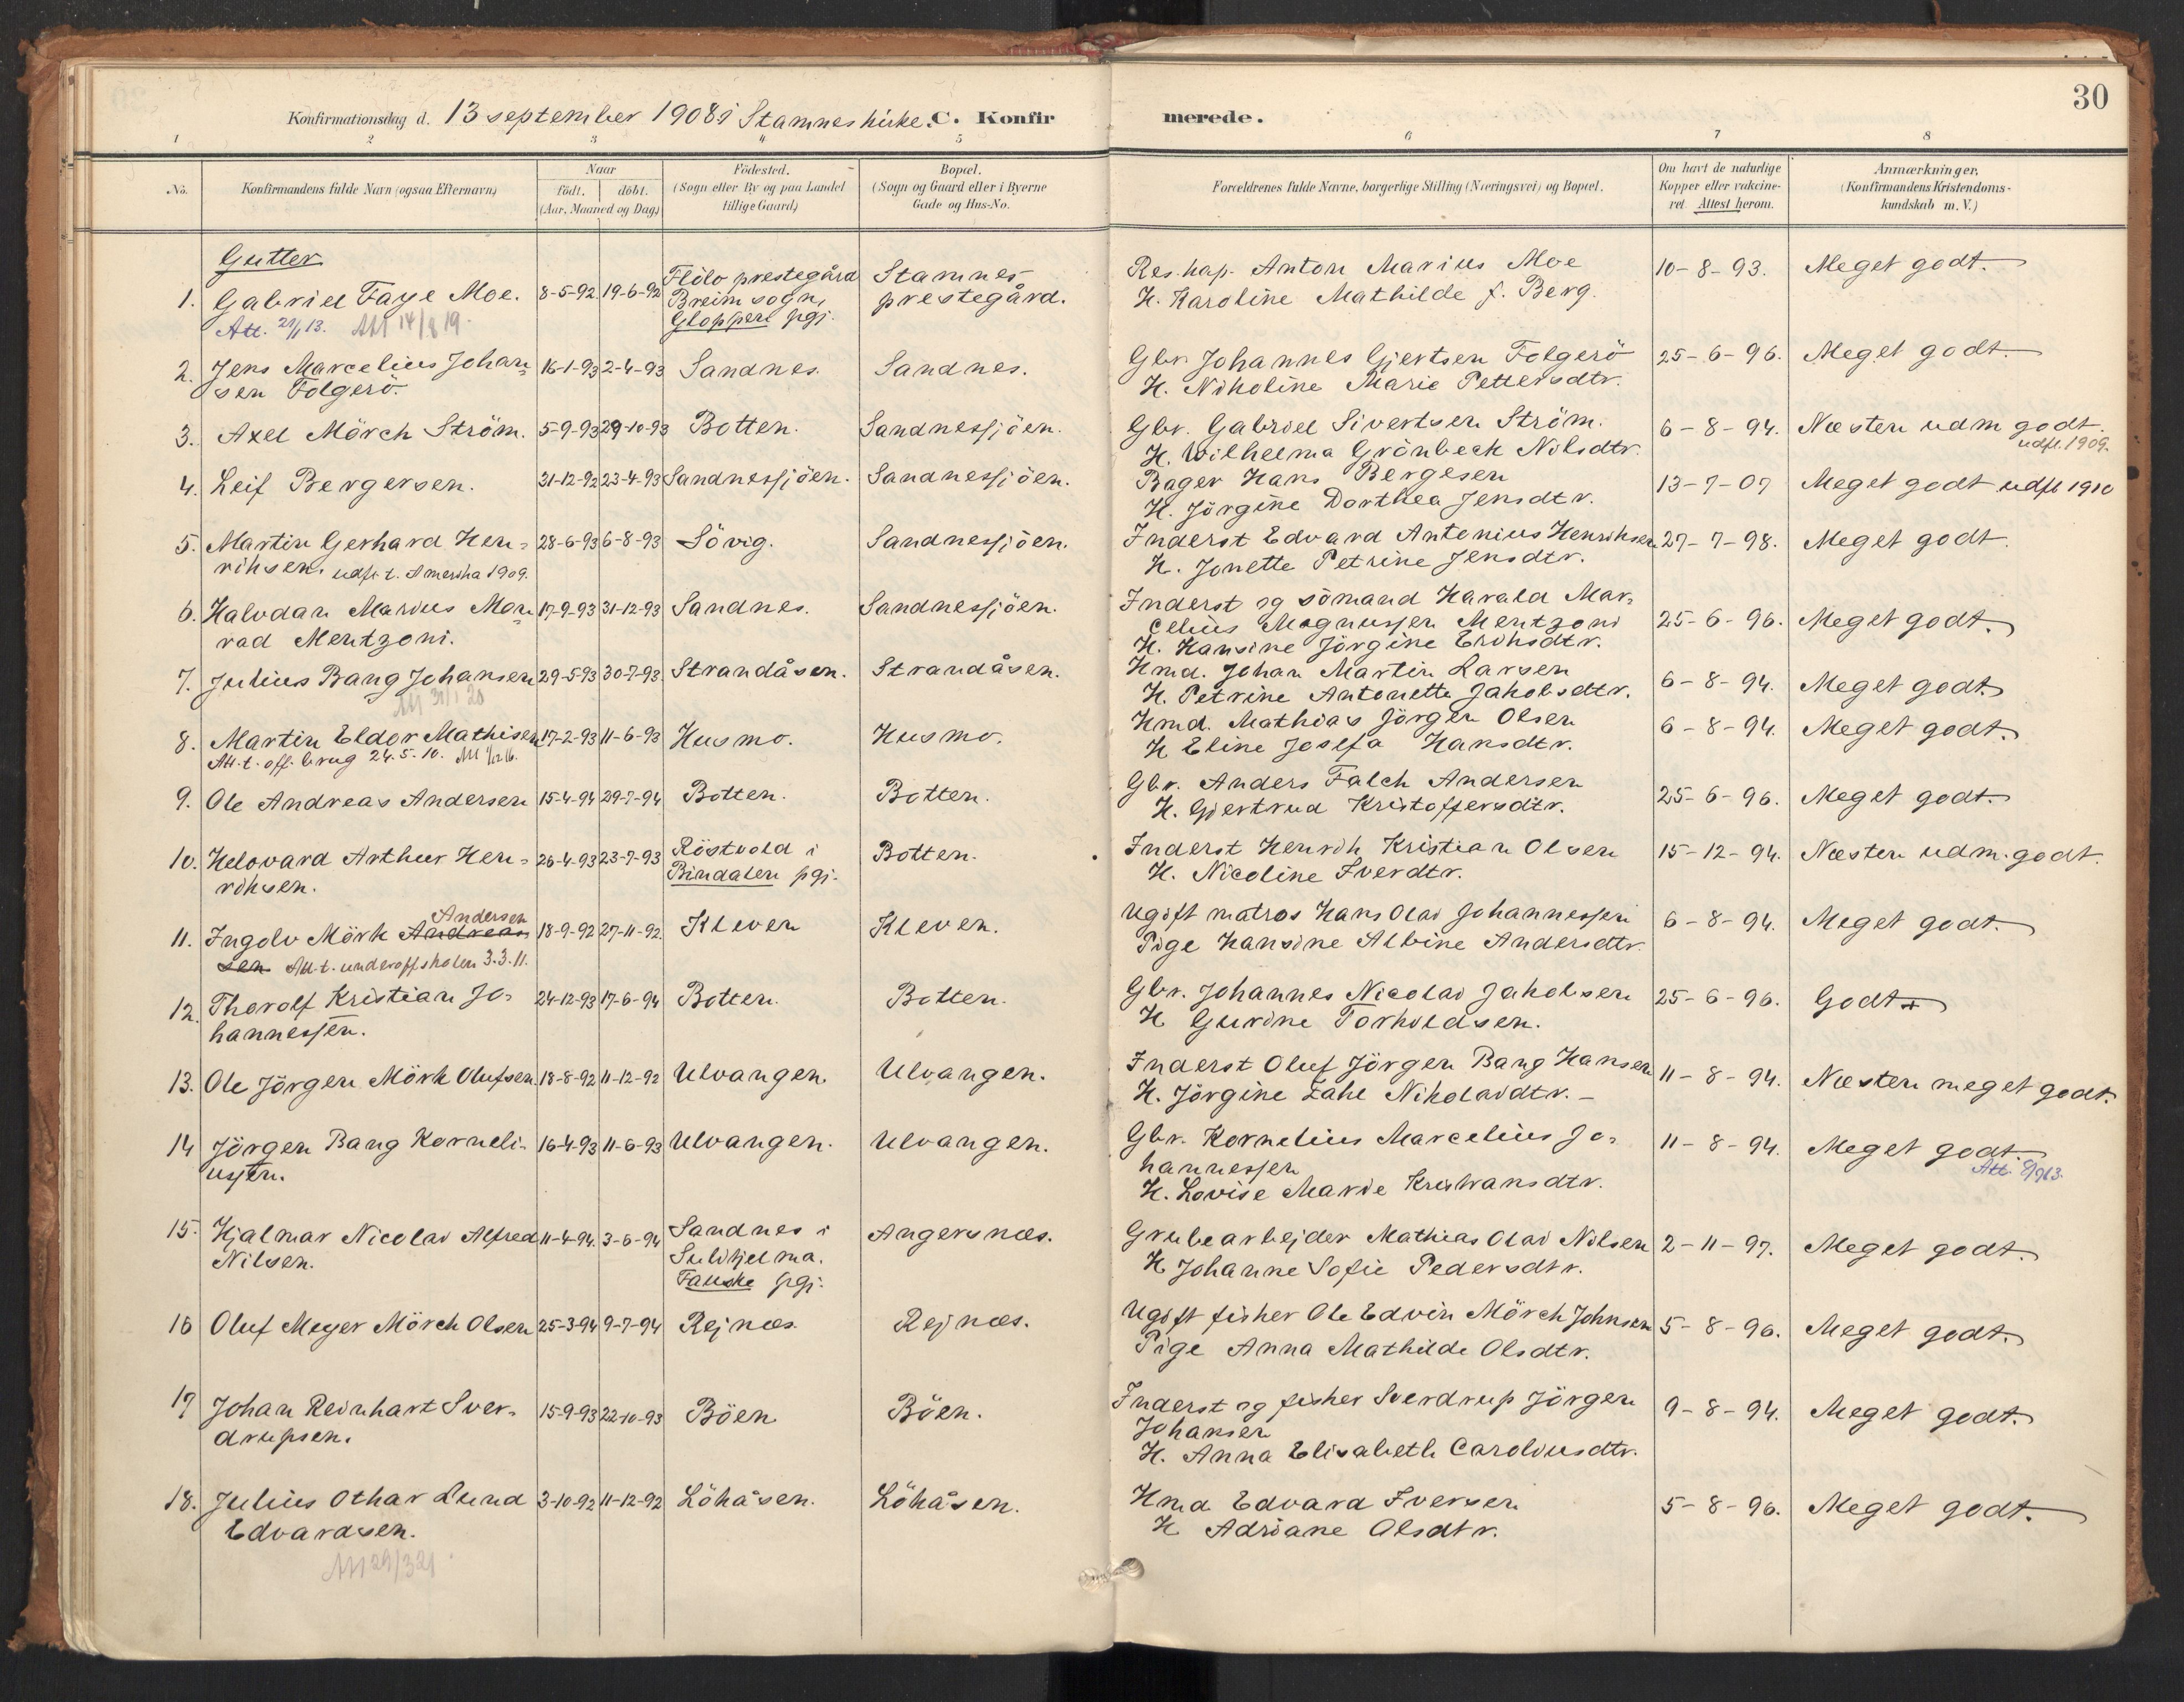 30
Konfirmationsdag d. 13 september 1908 i Stamnes kirke. C. Konfirmerede.
1 2 3 4 5 6 7 8
No.
Konfirmandens fulde Navn (ogsaa Efternavn)
Naar
födt. döbt.
(Aar, Maaned og Dag)
Födested.
(Sogn eller By og paa Landet
tillige Gaard)
Bopæl.
(Sogn og Gaard eller i Byerne
Gade og Hus-No.
Forældrenes fulde Navne, borgerlige Stilling (Næringsvei) og Bopæl.
Om havt de naturlige
Kopper eller vakcine-
ret Attest herom.
Anmærkninger,
(Konfirmandens Kristendoms-
kundskab m. V.)
Gutter
1. Gabriel Faye Moe. 8-5-92 19-6-92 Flölo prestegård Stamnes Res. kap. Anton Marius Moe 10-8-93. Meget godt.
Breim sogn, prestegård. H. Karoline Mathilde f. Berg.
Att. 13. Att 14/8 19. Gloppen pgj.
2. Jens Marcelius Johan- 16-1-93 2-4-93 Sandnes Sandnes. Gbr. Johannes Gjertsen Folgerö 25-6-96. Meget godt.
sen Folgerö. H. Nikoline Marie Pettersdtr.
3. Axel Mörch Ström. 5-9-93 29-10-93 Botten. Sandnessjöen. Gbr. Gabriel Sivertsen Ström. 6-8-94. Næsten udm godt.
H. Wilhelma Grönbeck Nilsdtr. udfl. 1909.
4. Leif Bergersen. 31-12-92 23-4-93 Sandnessjöen. Sandnessjöen. Bager Hans Bergesen 13-7-07 Meget godt udfl 1910
H. Jörgine Dorthea Jensdtr.
5. Martin Gerhard Hen- 28-6-93 6-8-93 Sövig. Sandnessjöen. Inderst Edvard Antonius Henriksen 27-7-98. Meget godt.
riksen. udfl. t. Amerika 1909. H. Jonette Petrine Jensdtr.
6. Halvdan Marius Mon- 17-9-93 31-12-93 Sandnes. Sandnessjöen. Inderst og sömand Harald Mar- 25-6-96. Meget godt.
rad Mentzoni. celius Magnussen Mentzoni
H. Hansine Jörgine Eriksdtr.
7. Julius Bang Johansen 29-5-93 30-7-93 Strandåsen. Strandåsen. Hmd. Johan Martin Larsen 6-8-94. Meget godt.
H. Petrine Antonette Jakobsdtr.
8. Martin Eldor Mathisen 17-2-93 11-6-93 Husmo. Husmo. Hmd. Mathias Jörgen Olsen 6-8-94. Meget godt.
Att. t. off. brug 24.5.10. H Eline Josefa Hansdtr.
9. Ole Andreas Andersen 15-4-94 29-7-94 Botten. Botten. Gbr. Anders Falch Andersen 25-6-96. Meget godt.
H. Gjertrud Kristoffersdtr.
10. Helovard Arthur Hen- 26-4-93 23-7-93 Röstvold i Botten. Inderst Henrik Kristian Olsen 15-12-94. Næsten udm. godt.
riksen. Bindalen pgj. H. Nicoline Iverdtr.
Andersen
11. Ingolv Mörk Andrea- 18-9-92 27-11-92 Kleven Kleven. Ugift matros Hans Olai Johannessen 6-8-94. Meget godt.
sen Att. t. underoffskolen 3.3.11. Pige Hansine Albine Andersdtr.
12. Thorolf Kristian Jo- 24-12-93 17-6-94 Botten. Botten. Gbr. Johannes Nicolai Jakobsen 25-6-96. Godt+
hannessen. H Gurine Torkildsen.
13. Ole Jörgen Mörk Olufsen 18-8-92 11-12-92 Ulvangen. Ulvangen. Inderst Oluf Jörgen Bang Hansen 11-8-94. Næsten meget godt.
H. Jörgine Zahl Nikolaidtr. -
14 Jörgen Bang Korneli- 16-4-93 11-6-93 Ulvangen. Ulvangen. Gbr. Kornelius Marcelius Jo- 11-8-94. Meget godt.
ussen. hannessen Att.
H. Lovise Marie Kristiansdtr.
15. Hjalmar Nicolai Alfred 11-4-94. 3-6-94 Sandnes i Angersnæs. Grubearbejder Mathias Olai Nilsen 2-11-97. Meget godt.
Nilsen. Sulitjelma. H Johanne Sofie Pedersdtr.
Fauske pgj.
16 Oluf Meyer Mörch Olsen 25-3-94 9-7-94 Rejnæs. Rejnæs. Ugift fisker Ole Edvin Mörch Johnsen 5-8-96. Meget godt.
Pige Anna Mathilde Olsdtr.
17 Johan Reinhart Sver- 15-9-93 22-10-93 Böen Böen. Inderst og fisker Sverdrup Jörgen 9-8-94. Meget godt.
drupsen. Johansen
H. Anna Elisabeth Caroliusdtr.
18. Julius Othar Lund 3-10-92 11-12-92 Lökåsen. Lökåsen. Hmd Edvard Iversen 5-8-96. Meget godt.
Edvardsen. H Adriane Olsdtr.
Att 29/3 21